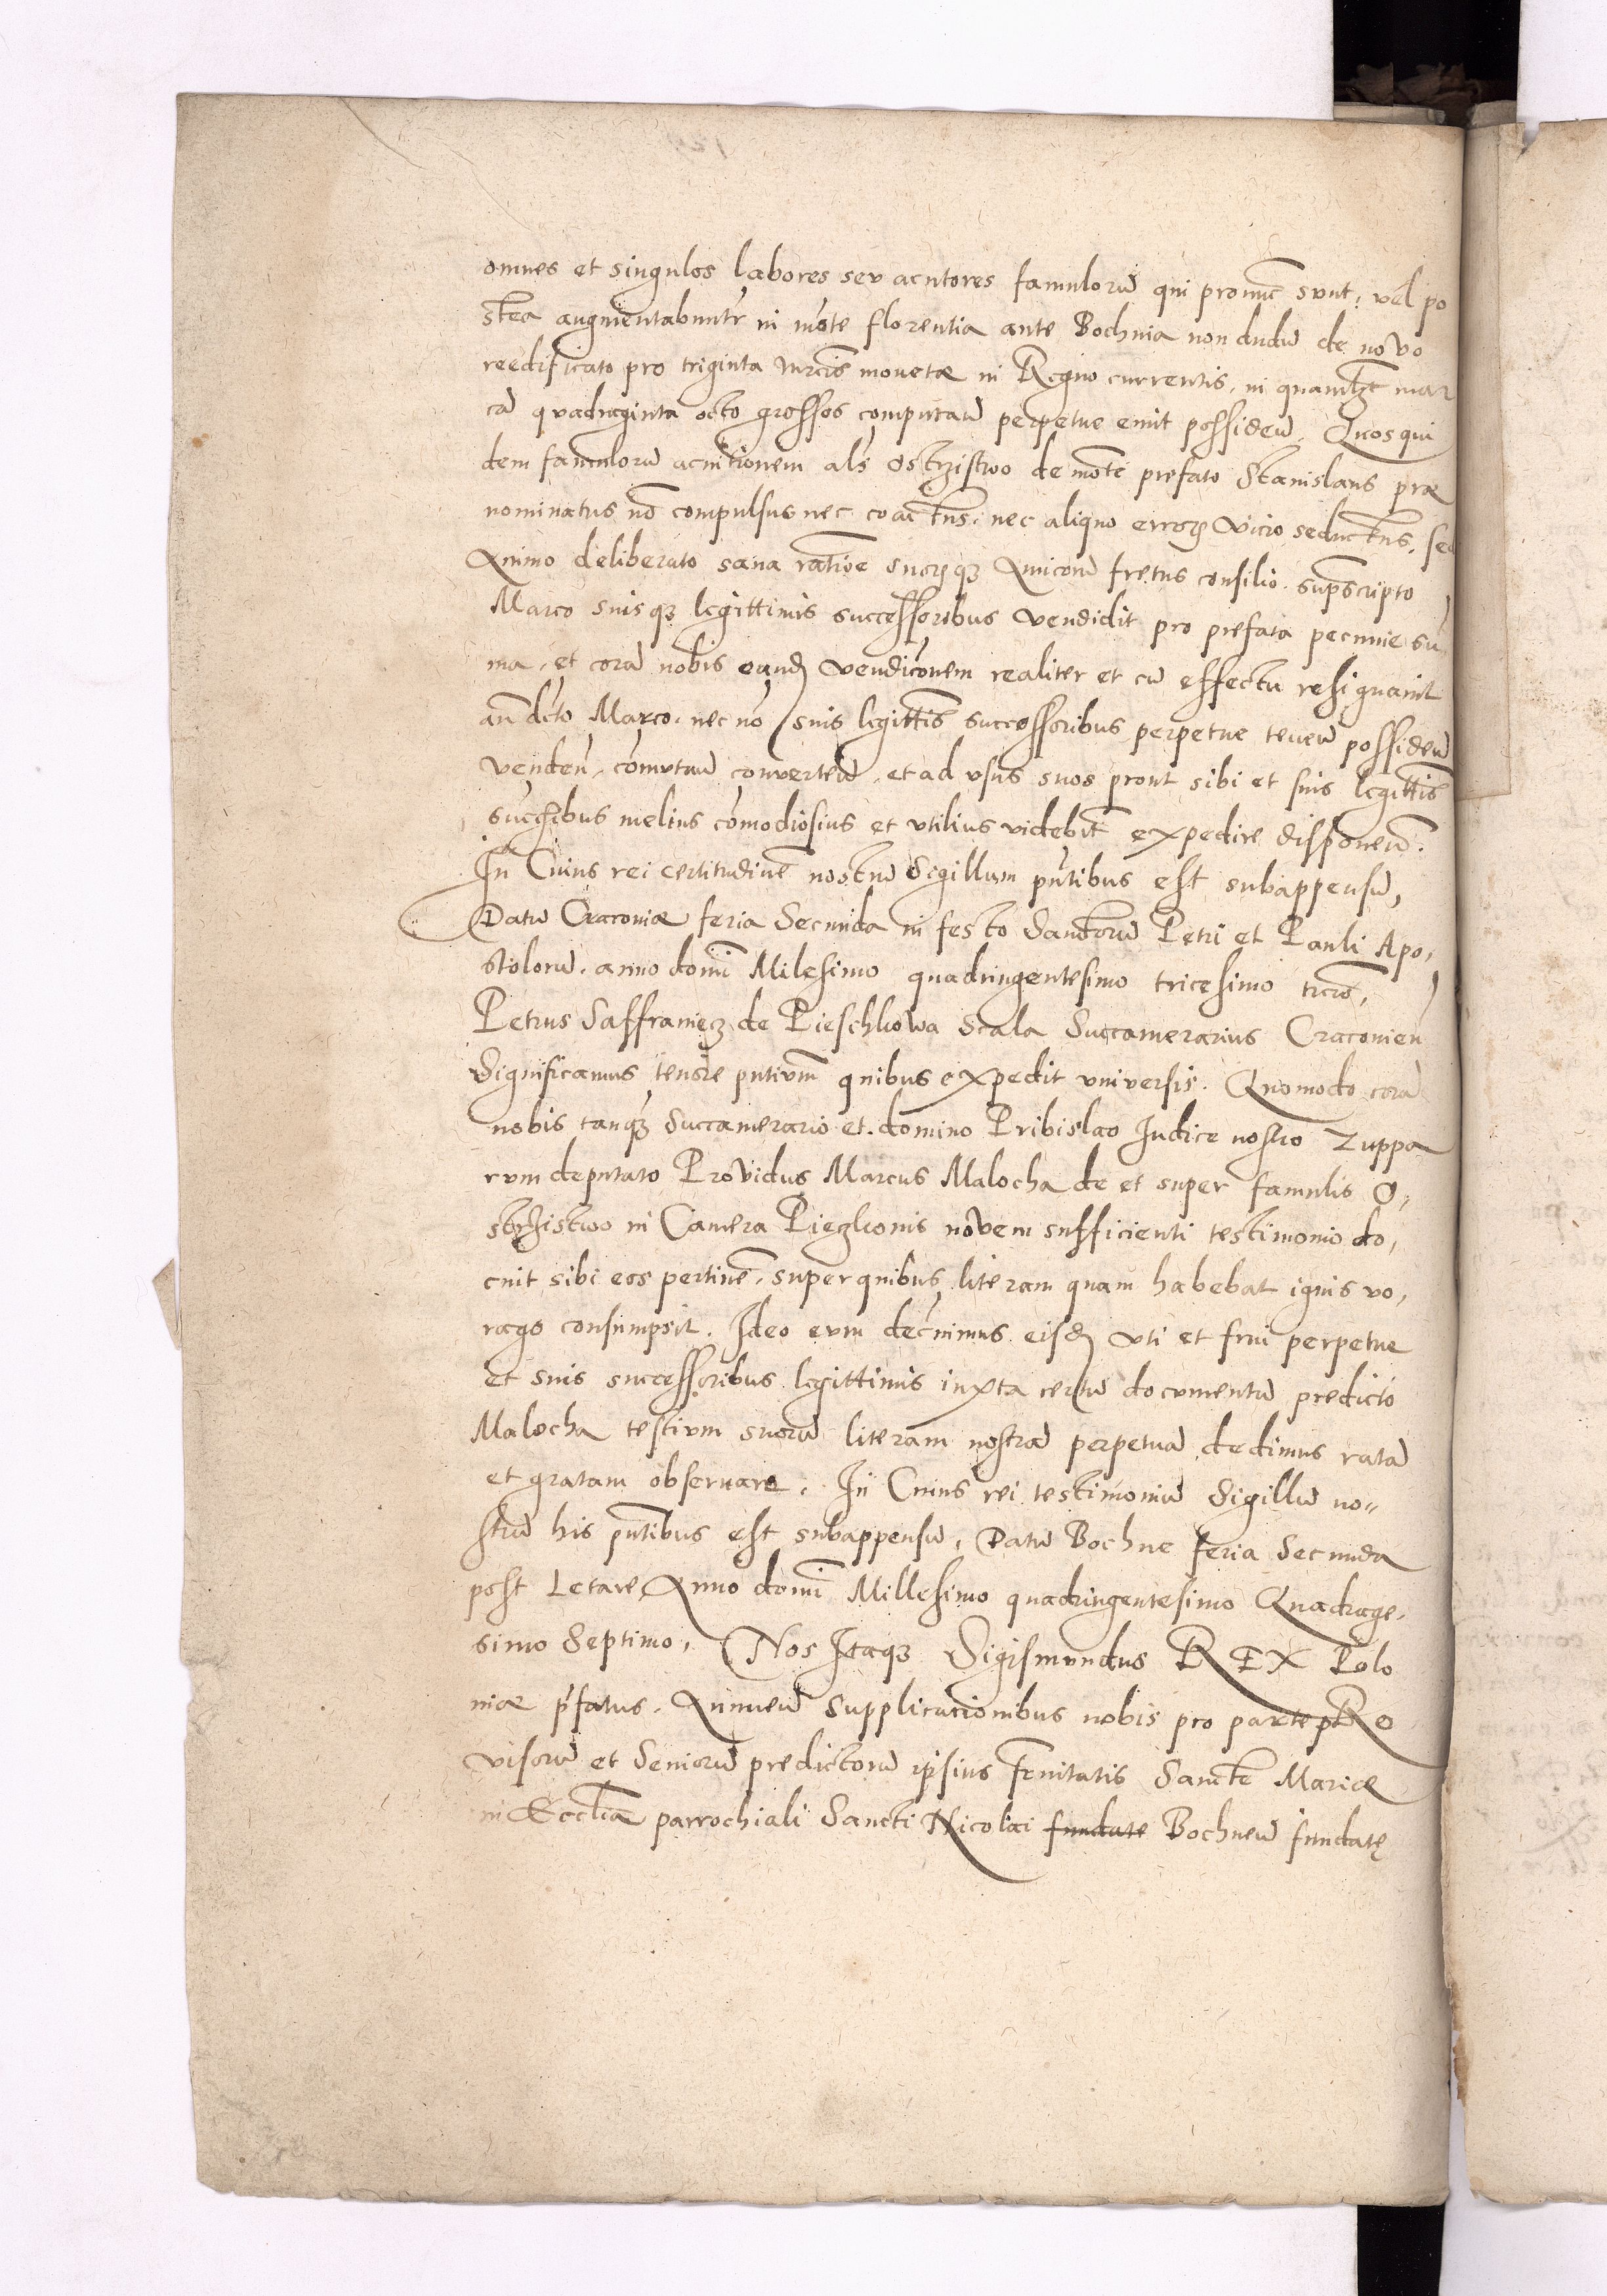 omnes et singulos labores seu acutores famulorū qui pronūc sunt, vel po
stea augmentabuntr in mōte florentia ante Bochnia non dudū de novo
reedificato pro triginta mrcis monetæ in Regno currentis, in quamlzt mar
cā quadraginta octo grossos computan̄ perpetue emit possiden̄. Quos qui
dem famulorū acutionem als ostrzistwo de mōte prefato Stanislaus præ
nominatus nō compulsus nec coactus, nec aliquo erroris vicio seductus, sed
Animo deliberato sana ratiōe suorūqz Amicorū fretus consilio. suprascripto
Marco suisqz legittimis successoribus vendidit pro prefata pecunie su
ma, et corā nobis eandē vendicōnem realiter et cū effectu resignavit
an̄dcto Marco, nec nō suis legittīs successoribus perpetue tenen̄ possiden̄
venden̄, cōmutan̄ converten̄, et ad usus suos prout sibi et suis legittīs
succsribus melius cōmodiosius et utilius videbit̄ expedire disponen̄.
In Cuius rei certitudinē nostrū Sigillum pn̄tibus est subappensū,
Datū Cracoviæ feria Secunda in festo Sanctorū Petri et Pauli Apo,
stolorū. anno domī Milesimo quadringentesimo tricesimo trcio,
Petrus Saffraniecz de Pieschkowa Scala Succamerarius Cracovien̄
Significamus tenōre pn̄tium quibus expedit universis. Quomodo corā
nobis tanqz Succamerario et domino Pribislao Iudice nostro Zuppa
rum deputato Providus Marcus Malocha de et super famulis O,
strzistwo in Camera Piezkonis novem sufficienti testimonio do,
cuit sibi eos pertinē, super quibus literam quam habebat ignis vo,
rago consumpsit. Ideo eum decnimus eisdē uti et frui perpetue
et suis successoribus legittimis iuxta certū documentū predicto
Malocha testium suorū literam nostrā perpetuā dedimus ratā
et gratam observare. In Cuius rei testimoniū Sigillū no,,
strū his pn̄tibus est subappensū, Datū Bochne feria Secunda
post Letare Anno domī Millesimo quadringentesimo Quadrage,
simo Septimo. Nos Itaqz Sigismundus REX Polo
niæ pr̄fatus. Annuen̄ Supplicacionibus nobis pro parte pRo
visorū et Seniorū predictorū ipsius Frnitatis Sanctæ Mariæ
in Ecclīa parrochiali Sancti Nicolai fundate Bochnen̄ fundatę